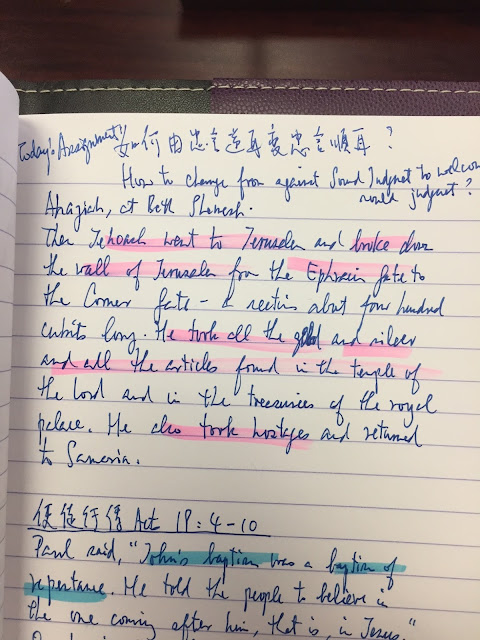 Today's Assignment! 如何由忠言逆耳變忠言順耳?
How to change from against Sound Judgment to welcome
sound judgment?
Ahaziah, at Beth Shemesh.
Then Jehoash went to Jerusalem and broke down
the wall of Jerusalem from the Ephraim Gate to
the Corner Gate - a section about four hundred
cubits long. He took all the gold and silver
and all the articles found in the temple of
the Lord and in the treasuries of the royal
palace. He also took hostages and returned
to Samaria.
使徒行傳 Act 19:4-10
Paul said, "John's baptism was a baptism of
repentance. He told the people to believe in
the one coming after him, that is, in Jesus."